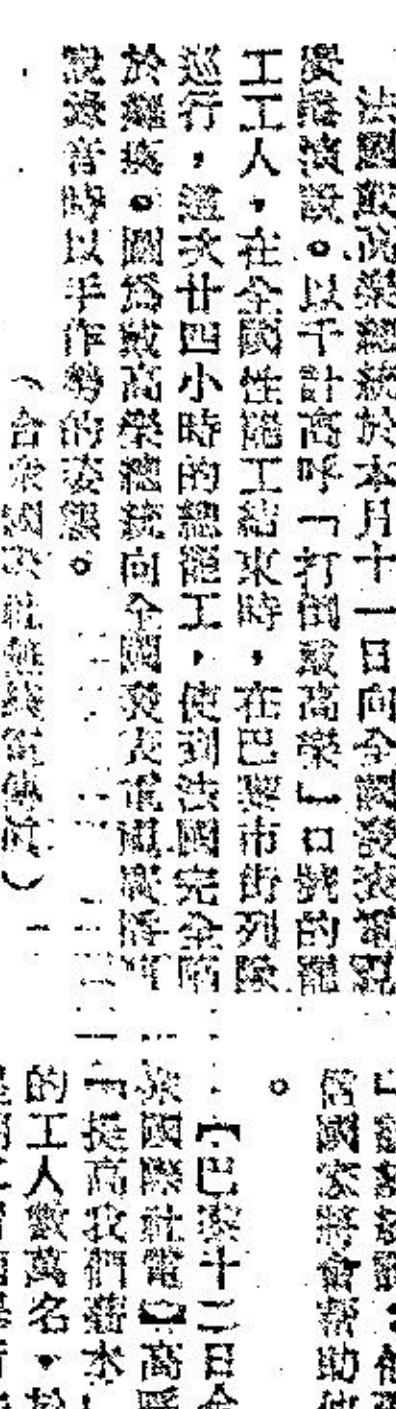 法國戴高樂總統於本月十一日向全國發表電視
廣播演說。以千計高呼「打倒戴高樂」口號的罷
工工人,在全國性罷工結束時,在巴黎市街列隊
巡行,這次廿四小時的總罷工,使到法國完全陷
於癱瘓。圖爲戴高樂總統向全國發表電視廣播演
說錄音時以手作勢的姿態。
(合衆國際社無綫電傳眞)
國家將會幫助
。
【巴黎十二日合
衆國際社電】高呼
「提高我們薪水
的工人數萬名,於